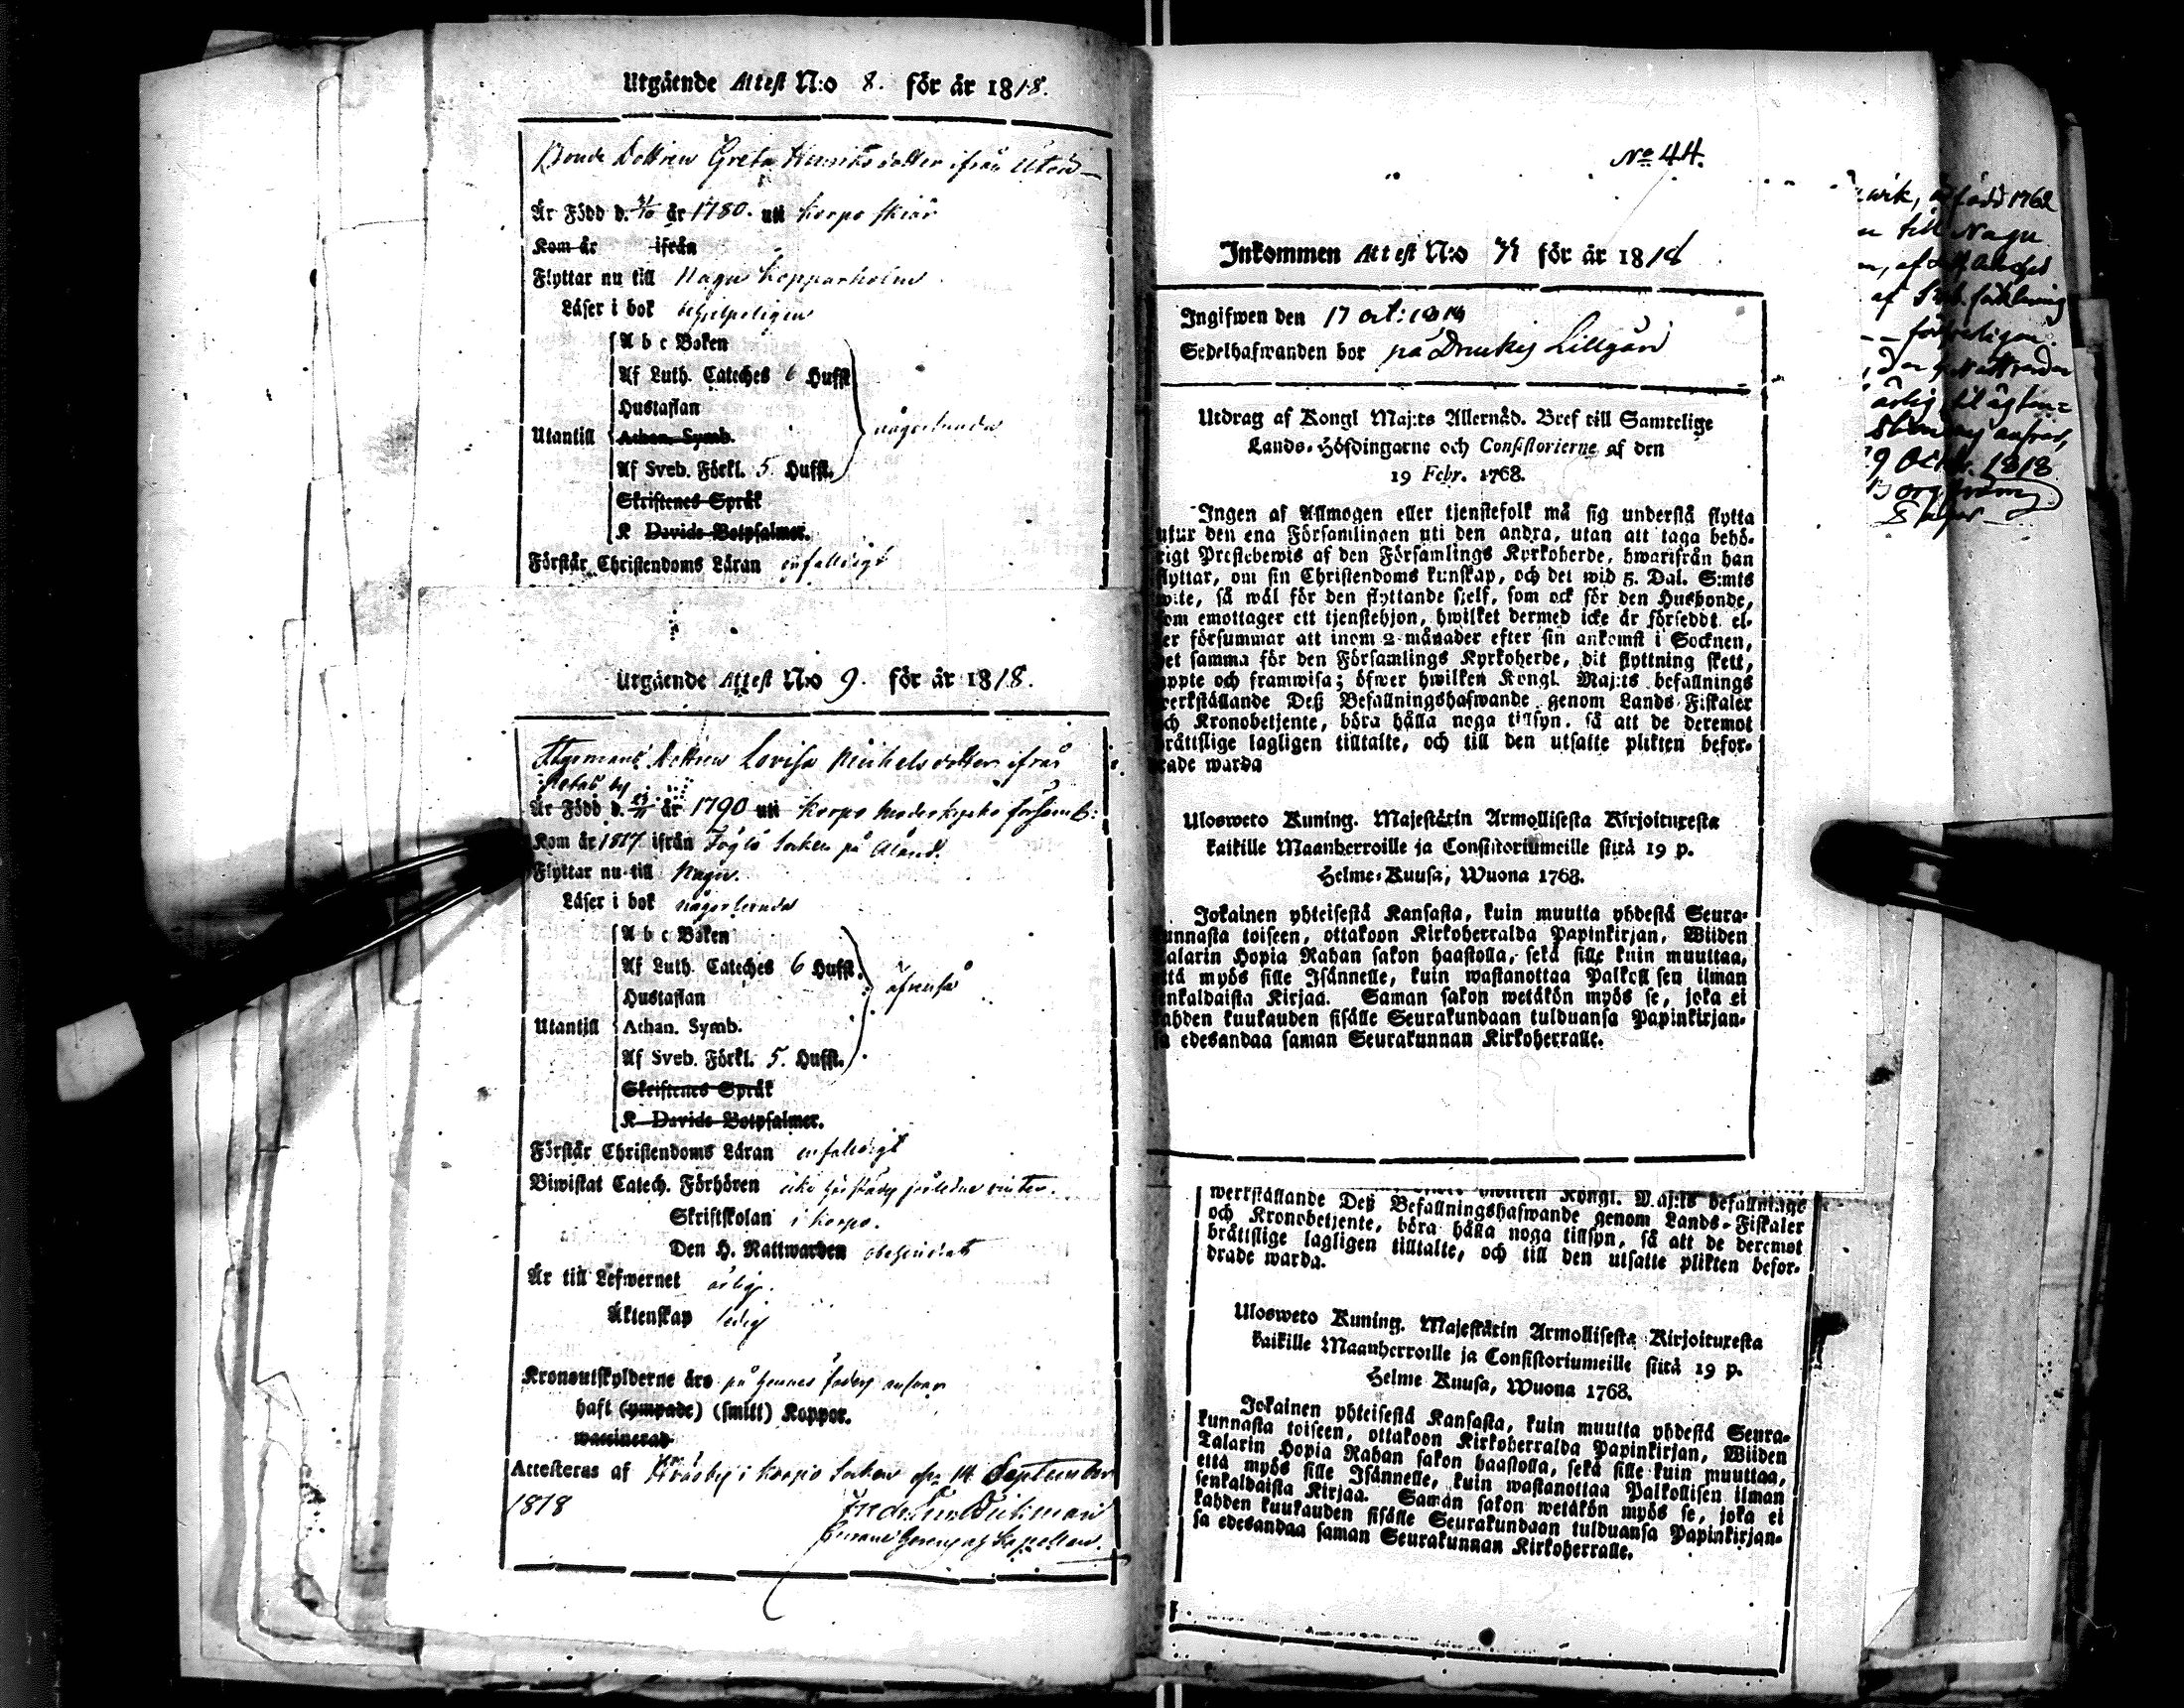 Utgående Attest N:o 8. för år 1818.
Bonde Dottren Greta Henriksdotter ifrån Utö
Är Född d. år 1780. uti Korpo skiär
Kom år ifrån
Flyttar nu till Nagu Kopparholm
Läser i bok behjelpeligen
A b c Boken
Af Luth. Cateches 6 Hufst.
Hustaflan
Utantill Athan. Symb. någorlunda
Af Sveb. Förkl. 5. Hufst.
Skriftenes Språk
K Davids Botpsalmer.
Förstår Christendoms Läran enfalldigt
Utgående Attest N:o 9. för år 1818.
Dottren Lovisa Michelsdotter ifrån
by
Är Född d. år 1790 uti Korpo moderkyrko församl:
Kom år 1817. ifrån Föglö Socken på Åland.
Flyttar nu till Nagu.
Läser i bok någorlunda
A b c Boken
Af Luth. Cateches 6 Hufst.
Hustaflan äfwenså
Utantill Athan. Symb.
Af Sveb. Förkl. 5. Hufst.
Skriftenes Språk
K Davids Botpsalmer.
Förstår Christendoms Läran enfalldigt
Biwistat Catech. Förhören icke härstädes förledne vinter.
Skriftskolan i Korpo.
Den H. Nattwarden obehindrat
Är till Lefwernet ärlig.
Äktenskap ledig
Kronoutskylderne äro på hennes faders answar
haft (ympade) (smitt) Koppor.
waccinerad
Attesteras af Korpo Socken 14 September
1818
No 44.
Inkommen Attest N:o för år 1818
Ingifwen den 17 oct: 1818
Sedelhafwanden bor på Lillgård
Utdrag af Kongl Maj:ts Allernåd. Bref till Samtelige
Lands-Höfdingarne och Consistorierne af den
19 Febr. 1768.
Ingen af Allmogen eller tjenstefolk må sig understå flytta
utur den ena Församlingen uti den andra, utan att taga behö-
rigt Prestebewis af den Församlings Kyrkoherde, hwarifrån han
flyttar, om sin Christendoms kunskap, och det wid 5. Dal. S:mts
wite, så wäl för den flyttande sielf, som ock för den Husbonde,
som emottager ett tjenstehjon, hwilket dermed icke är försedt, el-
ler försummar att inom 2 månader efter sin ankomst i Socknen,
det samma för den Församlings Kyrkoherde, dit flyttning skett,
uppte och framwisa; öfwer hwilken Kongl. Maj:ts befallnings
werkställande Deß Befallningshafwande genom Lands-Fiskaler
och Kronobetjente, böra hålla noga tillsyn, så att de deremot
brättslige lagligen tilltalte, och till den utsatte plikten befor-
drade warda
Ulosweto Kuning. Majestätin Armollisesta Kirjoituxesta
kaikille Maanherroille ja Consistoriumeille siitä 19 p.
Helme-Kuusa, Wuona 1768.
Jokainen yhteisestä Kansasta, kuin muutta yhdestä Seura-
kunnasta toiseen, ottakoon Kirkoherralda Papinkirjan, Wiiden
Talarin Hopia Rahan sakon haastolla, sekä sille kuin muuttaa,
että myös sille Isännelle, kuin wastanottaa Palkollisen ilman
senkaldaista Kirjaa. Saman sakon wetäkön myös se, joka ei
kahden kuukauden sisälle Seurakundaan tulduansa Papinkirjan-
sa edesandaa saman Seurakunnan Kirkoherralle.
werkställande Deß Befallningshafwande genom Lands-Fiskaler
och Kronobetjente, böra hålla noga tillsyn, så att de deremot
brättslige lagligen tilltalte, och till den utsatte plikten befor-
drade warda.
Ulosweto Kuning. Majestätin Armollisesta Kirjoituxesta
kaikille Maanherroille ja Consistoriumeille siitä 19 p.
Helme Kuusa, Wuona 1768.
Jokainen yhteisestä Kansasta, kuin muutta yhdestä Seura-
kunnasta toiseen, ottakoon Kirkoherralda Papinkirjan, Wiiden
Talarin Hopia Rahan sakon haastolla, sekä sille kuin muuttaa,
että myös sille Isännelle, kuin wastanottaa Palkollisen ilman
senkaldaista Kirjaa. Saman sakon wetäkön myös se, joka ei
kahden kuukauden sisälle Seurakundaan tulduansa Papinkirjan-
sa edesandaa saman Seurakunnan Kirkoherralle.
wik, född 1762
till Nagu
af
af Sveb. förklaring
Nattvarden
ärlig, til äkten=
answar,
9 Octbr. 1818